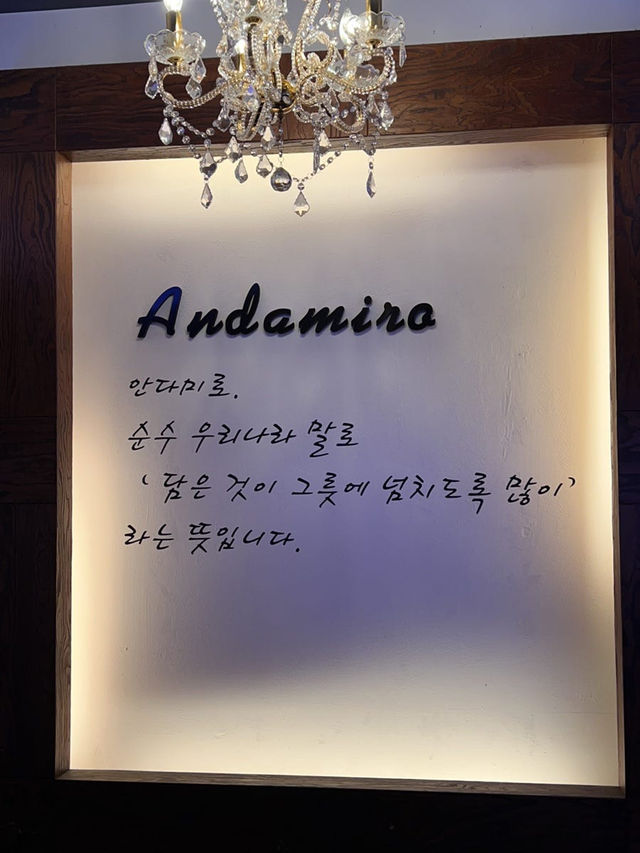 Andamiro
안다미로.
순수 우리나라 말로
'담은 것이 그릇에 넘치도록 많이'
라는 뜻입니다.